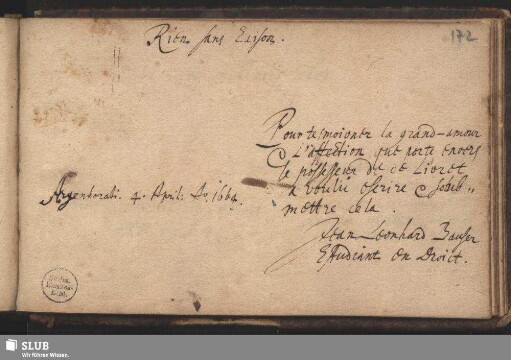 172
Rien sans Raison.
Pour tesmoigner la grand-amour
& L'affection que porte envers
le possesseur de ce Livret
a voulu escrire & soub„
mettre cela.
Argentorati. 4. April. Ao. 1664.
Jean Leonhard
Estudiant en Droict.
SLUB
Wir führen Wissen.